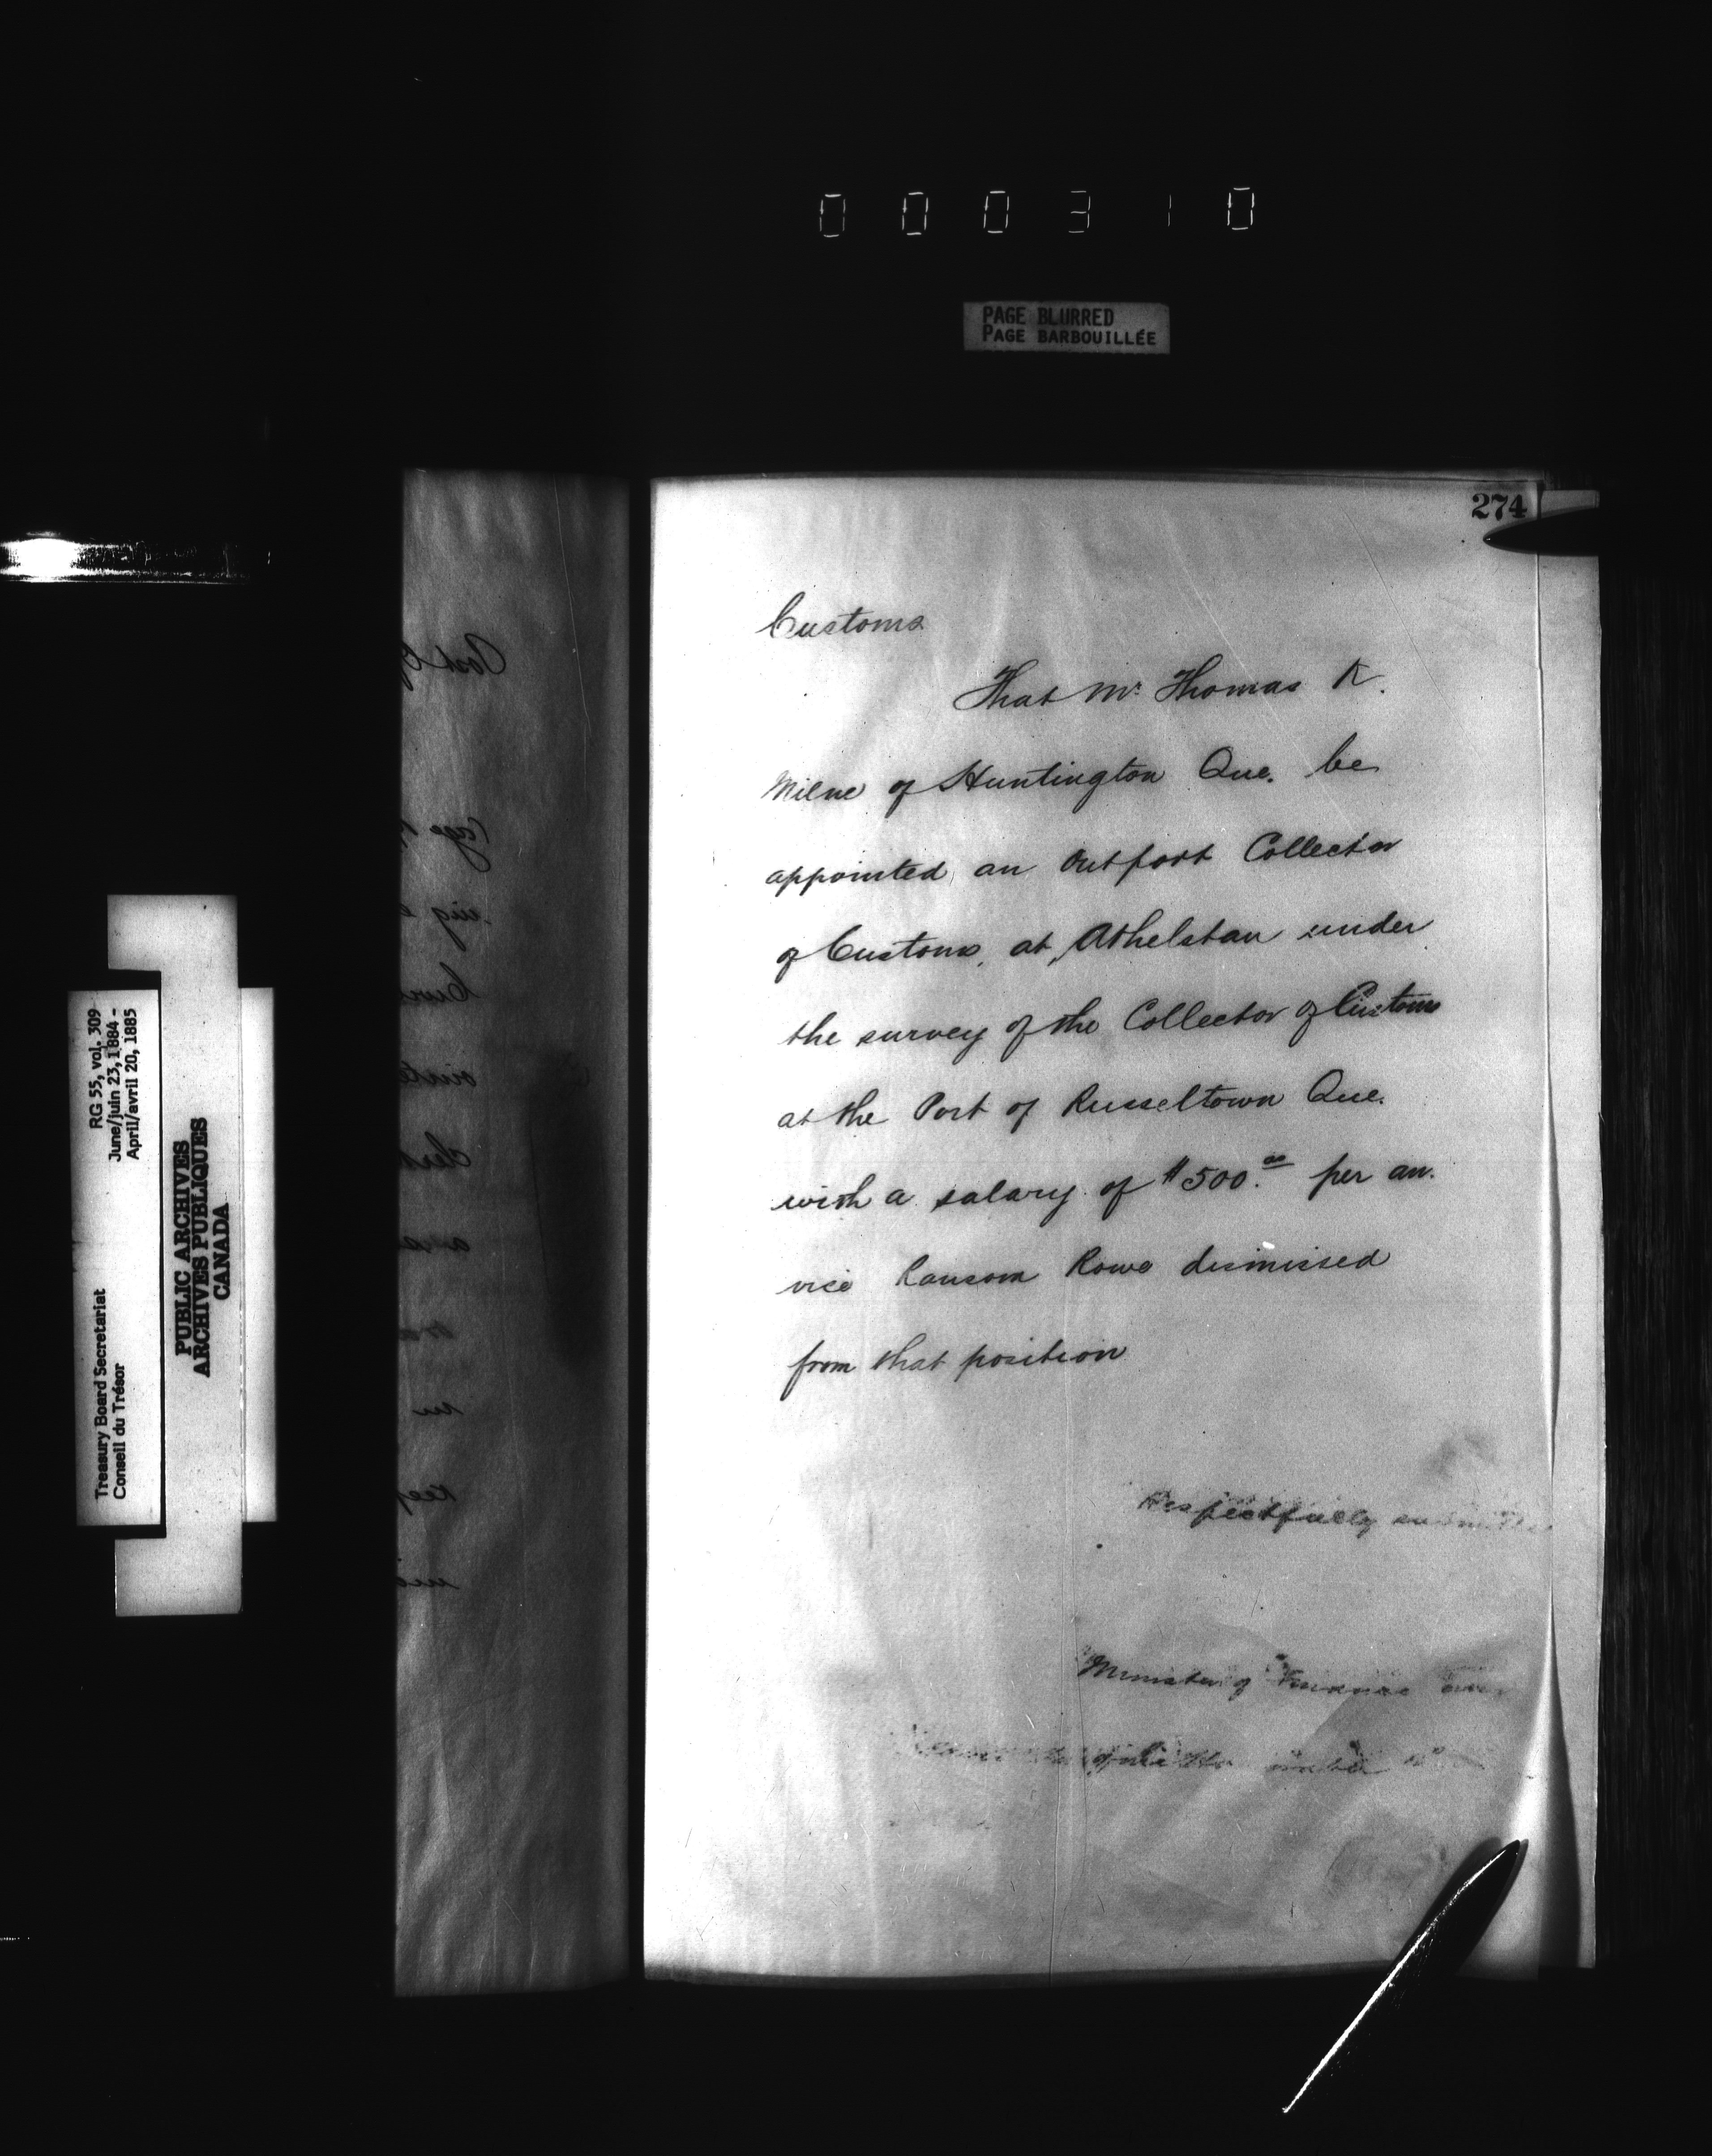 000310
PAGE BLURRED
PAGE BARBOUILLÉE
274
Customs
That Mr Thomas K.
Milne of Huntington Que. be
appointed an Outport Collector
of Customs, at Athelstan under
the survey of the Collector of Customs
at the Port of Russeltown Que.
with a salary of $500.00 per an.
vice Ransom Rowe dismissed
from that position
Respectfully submitted
Minister of Finance
RG 55, vol. 309
June/juin 23, 1884 -
April/avril 20, 1885
Treasury Board Secretariat
Conseil du Trésor
PUBLIC ARCHIVES
ARCHIVES PUBLIQUES
CANADA